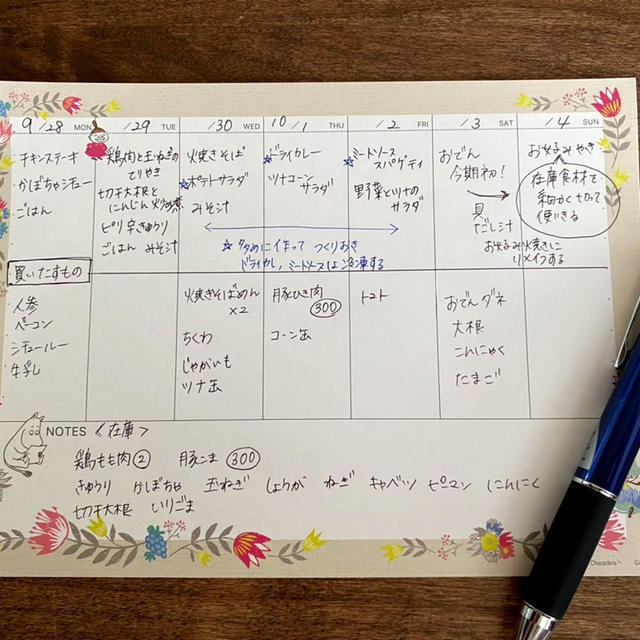 9/28 MON
/29 TUE
/30 WED
10/1 THU
/2 FRI
/3 SAT
/4 SUN
チキンステーキ
かぼちゃシチュー
ごはん
鶏肉と玉ねぎの
てりやき
切干大根と
にんじん炒め煮
ピリ辛きゅうり
ごはん みそ汁
焼きそば
☆ポテトサラダ
みそ汁
☆ドライカレー
ツナコーン
サラダ
☆ミートソース
スパゲティ
野菜とツナの
サラダ
☆多めに作って つくりおき
ドライカレー、ミートソースは冷凍する
おでん
今期初!
具
だし汁
お好み焼きに
リメイクする
お好みやき
在庫食材で
細かく切って
使いきる
買いたすもの
人参
ベーコン
シチュールー
牛乳
焼きそばめん
×2
ちくわ
じゃがいも
ツナ缶
豚ひき肉
300
コーン缶
トマト
おでんダネ
大根
こんにゃく
たまご
NOTES <在庫>
鶏もも肉② 豚こま 300
きゅうり かぼちゃ 玉ねぎ しょうが ねぎ キャベツ ピーマン にんにく
切干大根 いりごま
Characters